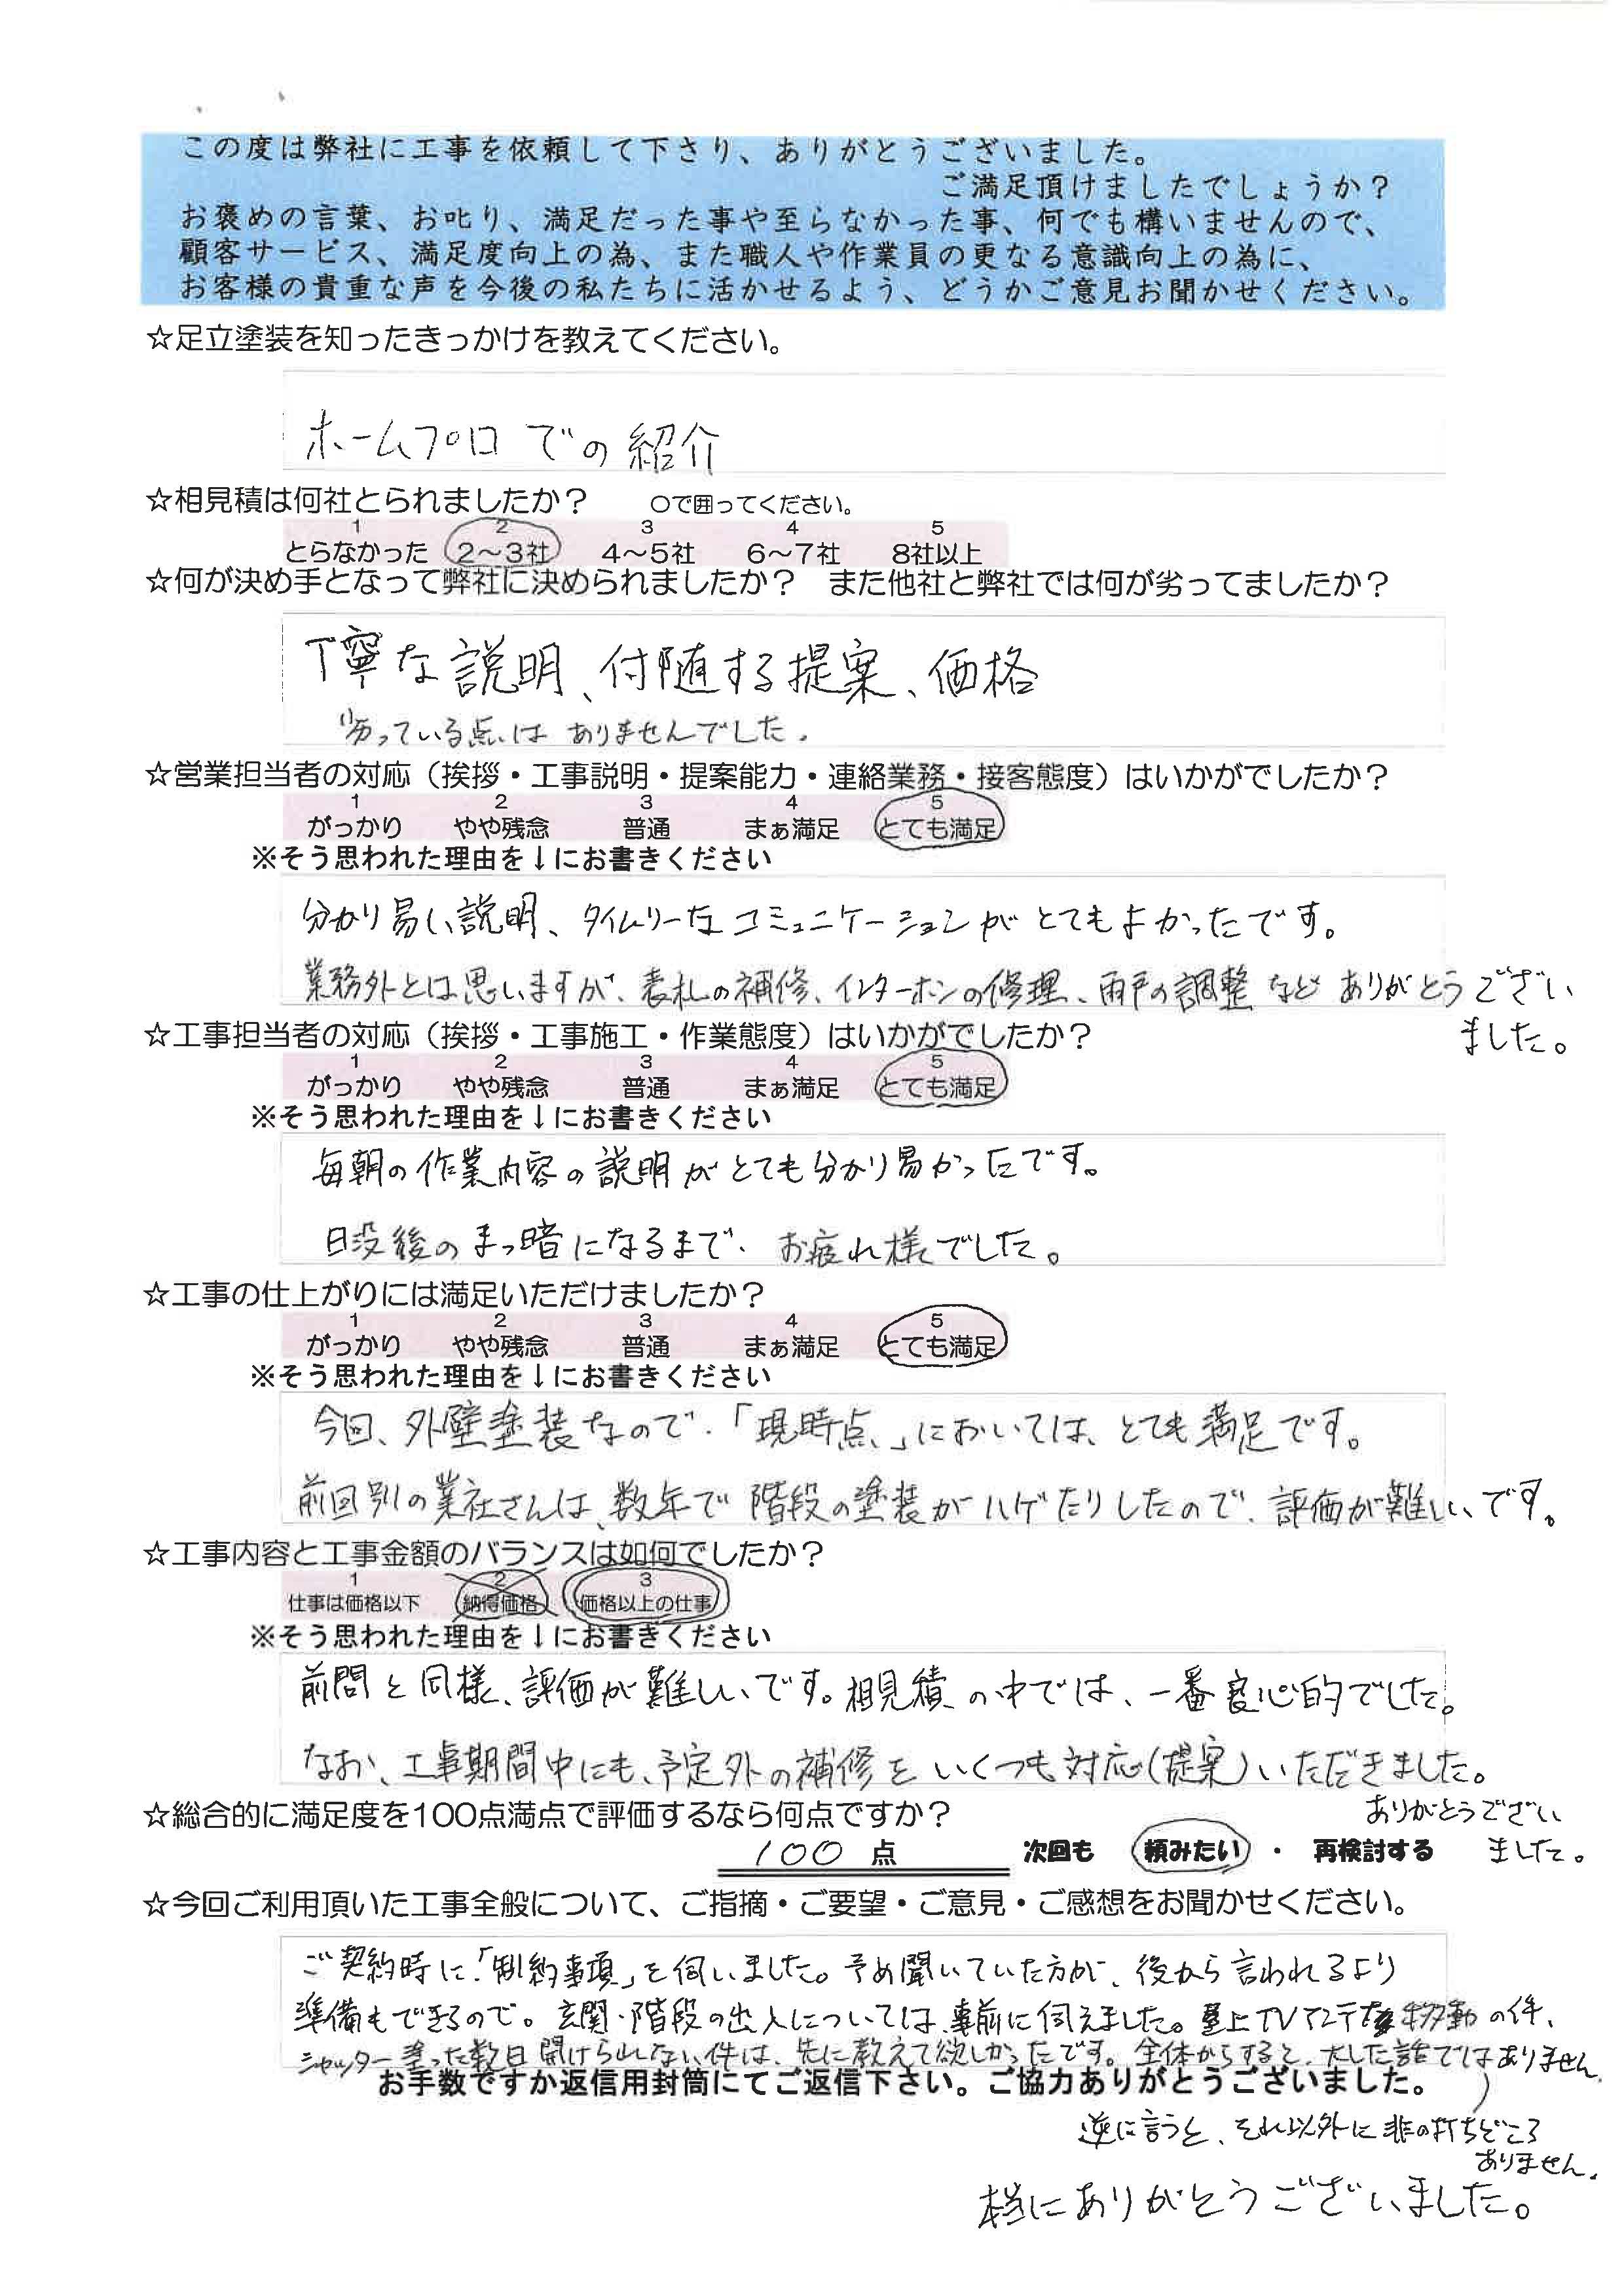 この度は弊社に工事を依頼して下さり、ありがとうございました。
ご満足頂けましたでしょうか？
お褒めの言葉、お叱り、満足だった事や至らなかった事、何でも構いませんので、
顧客サービス、満足度向上の為、また職人や作業員の更なる意識向上の為に、
お客様の貴重な声を今後の私たちに活かせるよう、どうかご意見お聞かせください。
☆足立塗装を知ったきっかけを教えてください。
ホームプロでの紹介
☆相見積は何社とられましたか？　○で囲ってください。
1 2 3 4 5
とらなかった 2～3社 4～5社 6～7社 8社以上
☆何が決め手となって弊社に決められましたか？　また他社と弊社では何が劣ってましたか？
丁寧な説明、付随する提案、価格
劣っている点は ありませんでした。
☆営業担当者の対応（挨拶・工事説明・提案能力・連絡業務・接客態度）はいかがでしたか？
1 2 3 4 5
がっかり やや残念 普通 まぁ満足 とても満足
※そう思われた理由を↓にお書きください
分かり易い説明、タイムリーなコミュニケーションがとてもよかったです。
業務外とは思いますが、表札の補修、インターホンの修理、雨戸の調整など ありがとうござい
ました。
☆工事担当者の対応（挨拶・工事施工・作業態度）はいかがでしたか？
1 2 3 4 5
がっかり やや残念 普通 まぁ満足 とても満足
※そう思われた理由を↓にお書きください
毎朝の作業内容の説明がとても分かり易かったです。
日没後のまっ暗になるまで、お疲れ様でした。
☆工事の仕上がりには満足いただけましたか？
1 2 3 4 5
がっかり やや残念 普通 まぁ満足 とても満足
※そう思われた理由を↓にお書きください
今回、外壁塗装なので、「現時点」においては、とても満足です。
前回別の業社さんは、数年で階段の塗装がハゲたりしたので、評価が難しいです。
☆工事内容と工事金額のバランスは如何でしたか？
1 2 3
仕事は価格以下 納得価格 価格以上の仕事
※そう思われた理由を↓にお書きください
前問と同様、評価が難しいです。相見積の中では、一番良心的でした。
なお、工事期間中にも、予定外の補修をいくつも対応(提案)いただきました。
ありがとうござい
ました。
☆総合的に満足度を100点満点で評価するなら何点ですか？
100 点 次回も 頼みたい ・ 再検討する
☆今回ご利用頂いた工事全般について、ご指摘・ご要望・ご意見・ご感想をお聞かせください。
ご契約時に「制約事項」を伺いました。予め聞いていた方が、後から言われるより
準備もできるので。玄関・階段の出入については、事前に伺えました。屋上TVアンテナ移動の件、
シャッター塗った数日開けられない件は、先に教えて欲しかったです。全体からすると、大した話ではありません。
お手数ですが返信用封筒にてご返信下さい。ご協力ありがとうございました。
逆に言うと、それ以外に非の打ちどころ
ありません。
本当にありがとうございました。